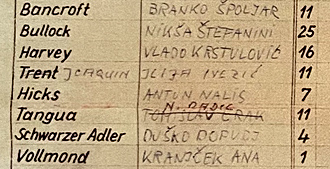 Bancroft BRANKO ŠPOLJAR 11
Bullock NIKŠA ŠTEFANINI 25
Harvey VLADO KRSTULOVIĆ 16
Trent JOAQUIN ILIJA IVEZIĆ 11
Hicks ANTUN NALIS 7
N. RADIĆ
Tangua TOMISLAV ERAK 11
Schwarzer Adler DUŠKO DOPUDJ 4
Vollmond KRANJČEK ANA 1